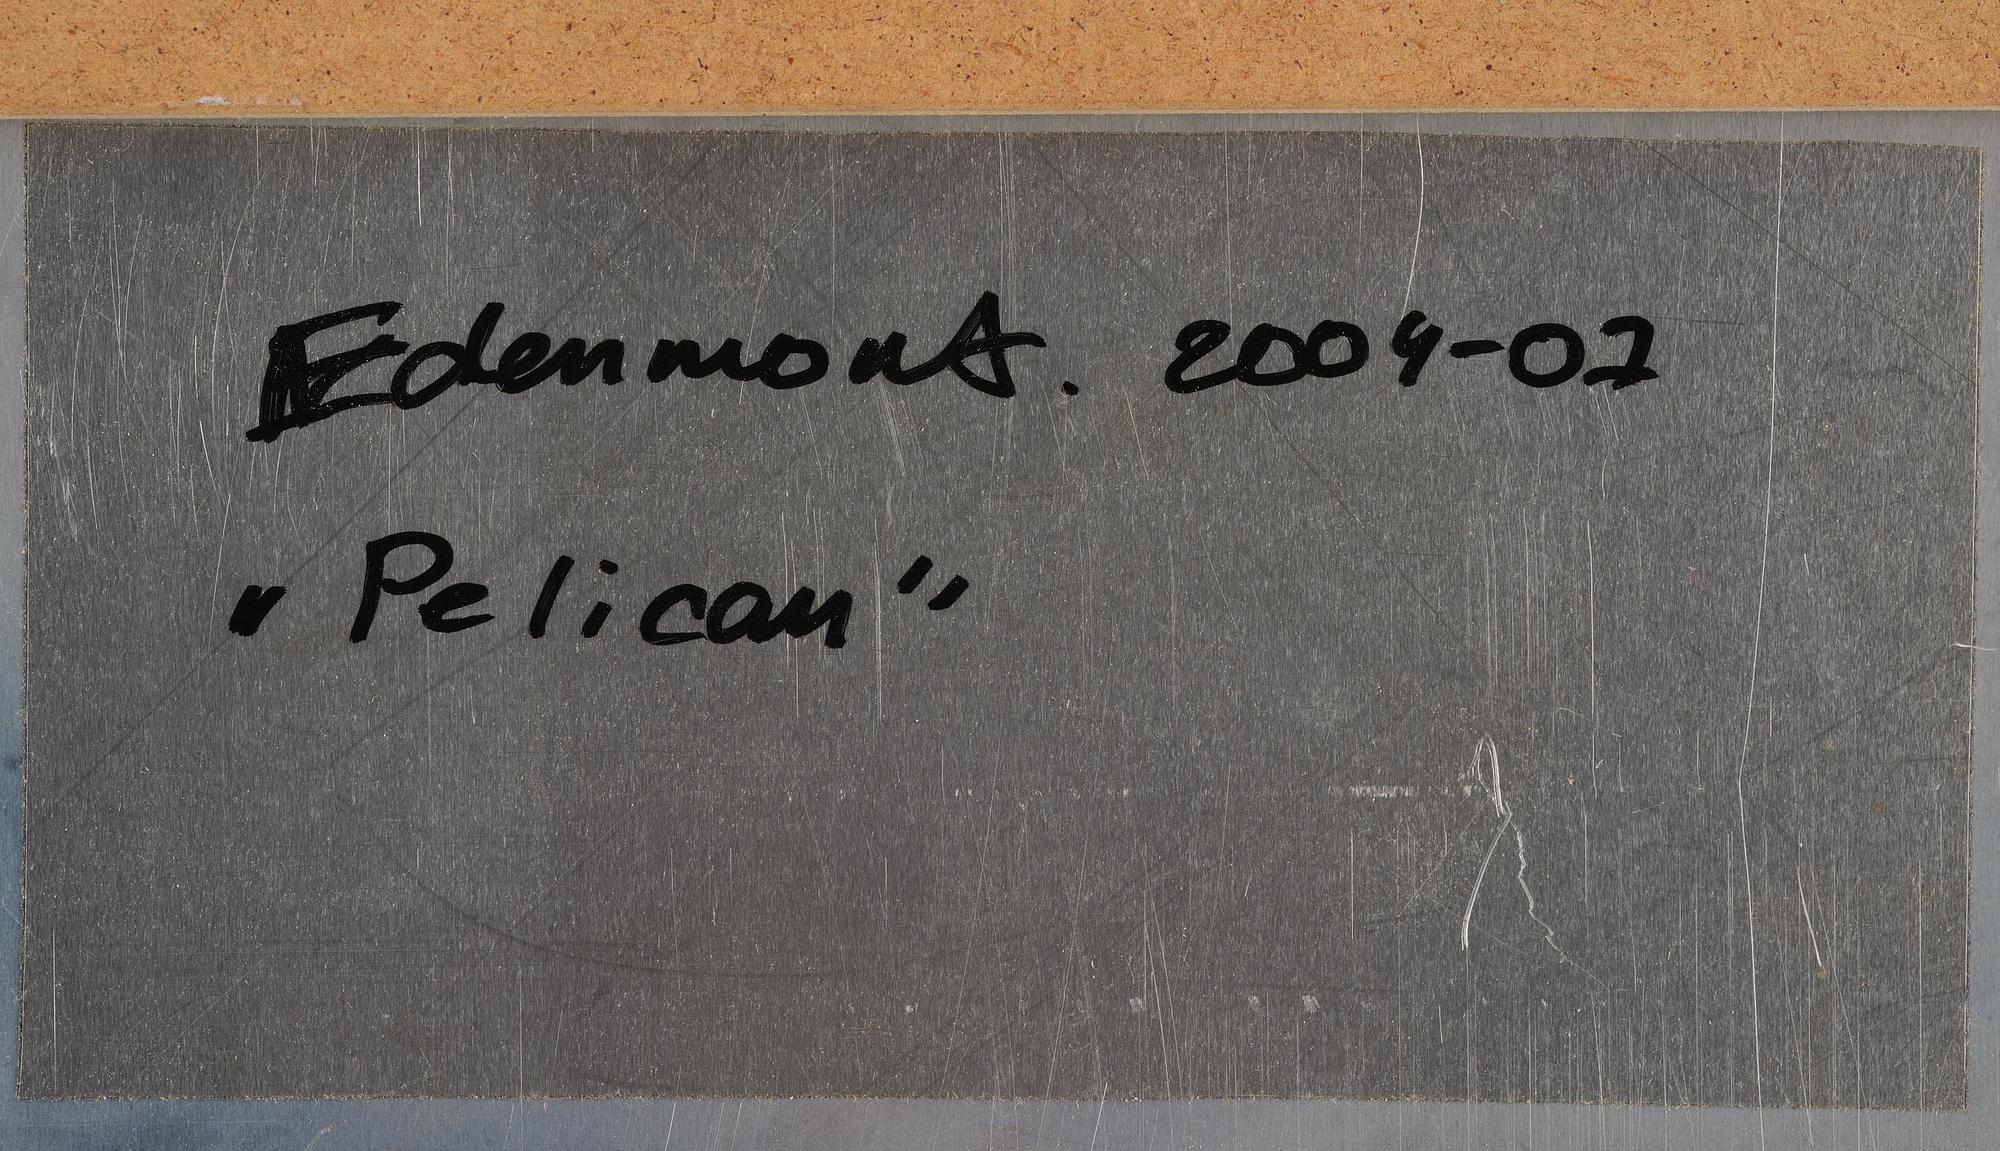 Edenmont. 2009-02
"Pelican"